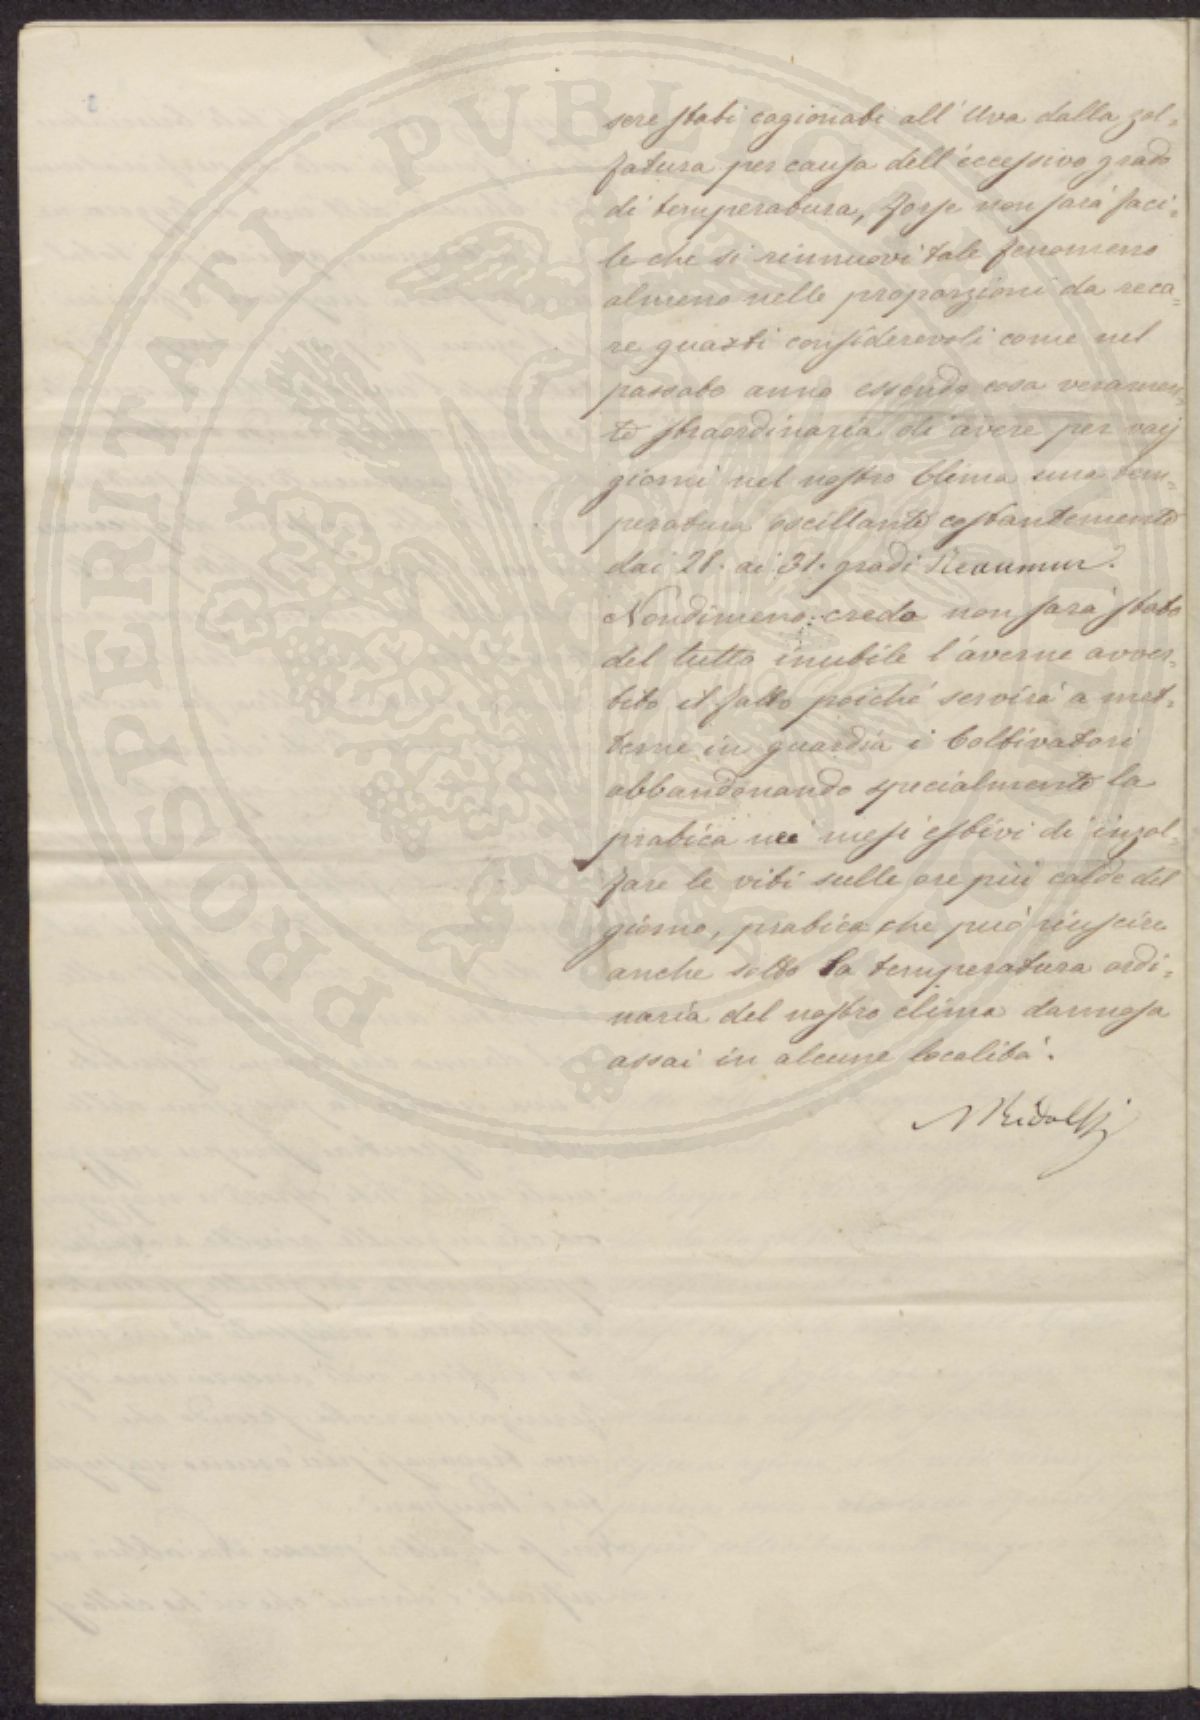 sere stati cagionati all'Uva dalla zol=
fatura per causa dell'eccessivo grado
di temperatura, forse non sarà faci=
le che si rinnuovi tale fenomeno
almeno nelle proporzioni da reca=
re guasti considerevoli come nel
passato anno essendo cosa veramen=
te straordinaria di avere per varj
giorni nel nostro Clima una tem=
peratura oscillante costantemente
dai 28. ai 31. gradi Reaumur.
Nondimeno credo non sarà stato
del tutto inutile l'averne avver=
tito il fatto poiché servirà a met=
terne in guardia i Coltivatori
abbandonando specialmente la
pratica nei mesi estivi di inzol=
fare le viti sulle ore più calde del
giorno, pratica che può riuscire
anche sotto la temperatura ordi=
naria del nostro clima dannosa
assai in alcune località.
N Ridolfi
PROSPERITATI PUBLICAE